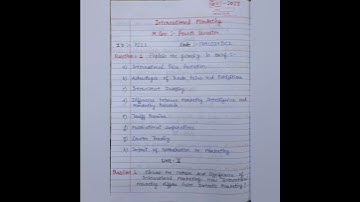 2022
International Marketing
M.Com :- Fourth Semester
ID :-
Code :-
Question: 1 Explain the following in briefly :-
a) International Price Quotation
b) Advantages of Trade Fairs and Exhibitions
c) Investment Decision
d) Difference between Marketing Intelligence and Marketing Research
e) Tariff Barriers
f) Multinational Corporations
g) Counter Trading
h) Impact of Globalisation on Marketing
Unit - I
Question: 2 Discuss the Nature and Significance of
International Marketing. How International
Marketing differs from Domestic Marketing?